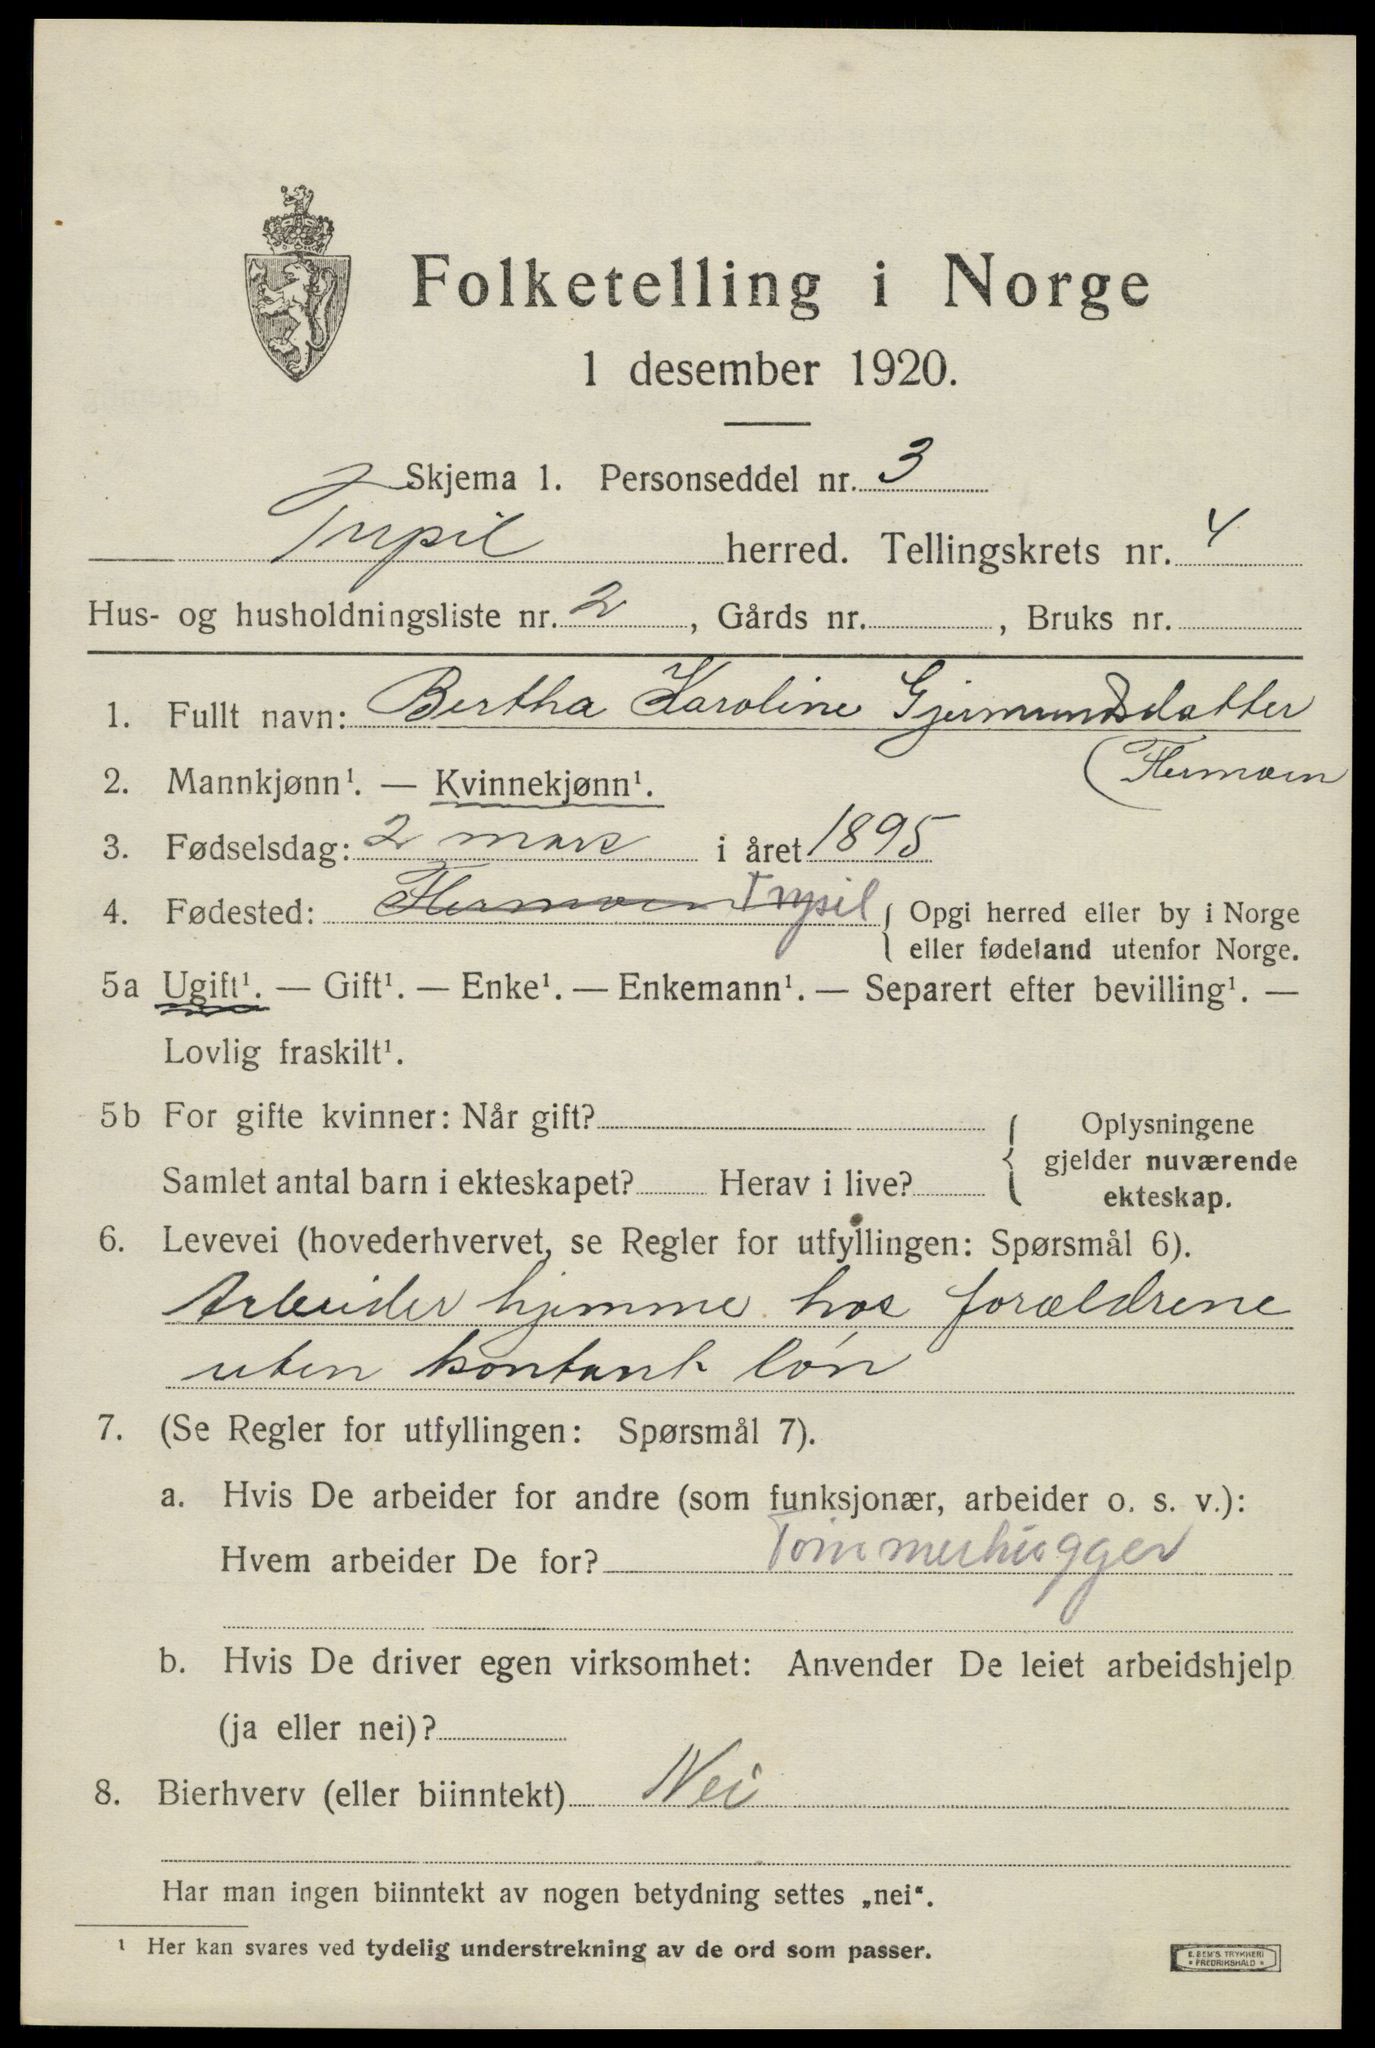 Folketelling i Norge
1 desember 1920.
Skjema 1. Personseddel nr. 3
Trysil herred. Tellingskrets nr. 4
Hus- og husholdningsliste nr. 2, Gårds nr. , Bruks nr.
1. Fullt navn: Bertha Karoline Gjermundsdatter
(Flermoen
2. Mannkjønn¹. — Kvinnekjønn¹.
3. Fødselsdag: 2 mars i året 1895
4. Fødested: Flermoen Trysil { Opgi herred eller by i Norge
eller fødeland utenfor Norge.
5a Ugift¹. — Gift¹. — Enke¹. — Enkemann¹. — Separert efter bevilling¹. —
Lovlig fraskilt¹.
5b For gifte kvinner: Når gift?
Samlet antal barn i ekteskapet? Herav i live?
{ Oplysningene
gjelder nuværende
ekteskap.
6. Levevei (hovederhvervet, se Regler for utfyllingen: Spørsmål 6).
Arbeider hjemme hos forældrene
uten kontant løn
7. (Se Regler for utfyllingen: Spørsmål 7).
a. Hvis De arbeider for andre (som funksjonær, arbeider o. s. v.):
Hvem arbeider De for? Tømmerhugger
b. Hvis De driver egen virksomhet: Anvender De leiet arbeidshjelp
(ja eller nei)?
8. Bierhverv (eller biinntekt) Nei
Har man ingen biinntekt av nogen betydning settes „nei“.
¹ Her kan svares ved tydelig understrekning av de ord som passer.
E. SEM'S TRYKKERI
* FREDRIKSHALD *